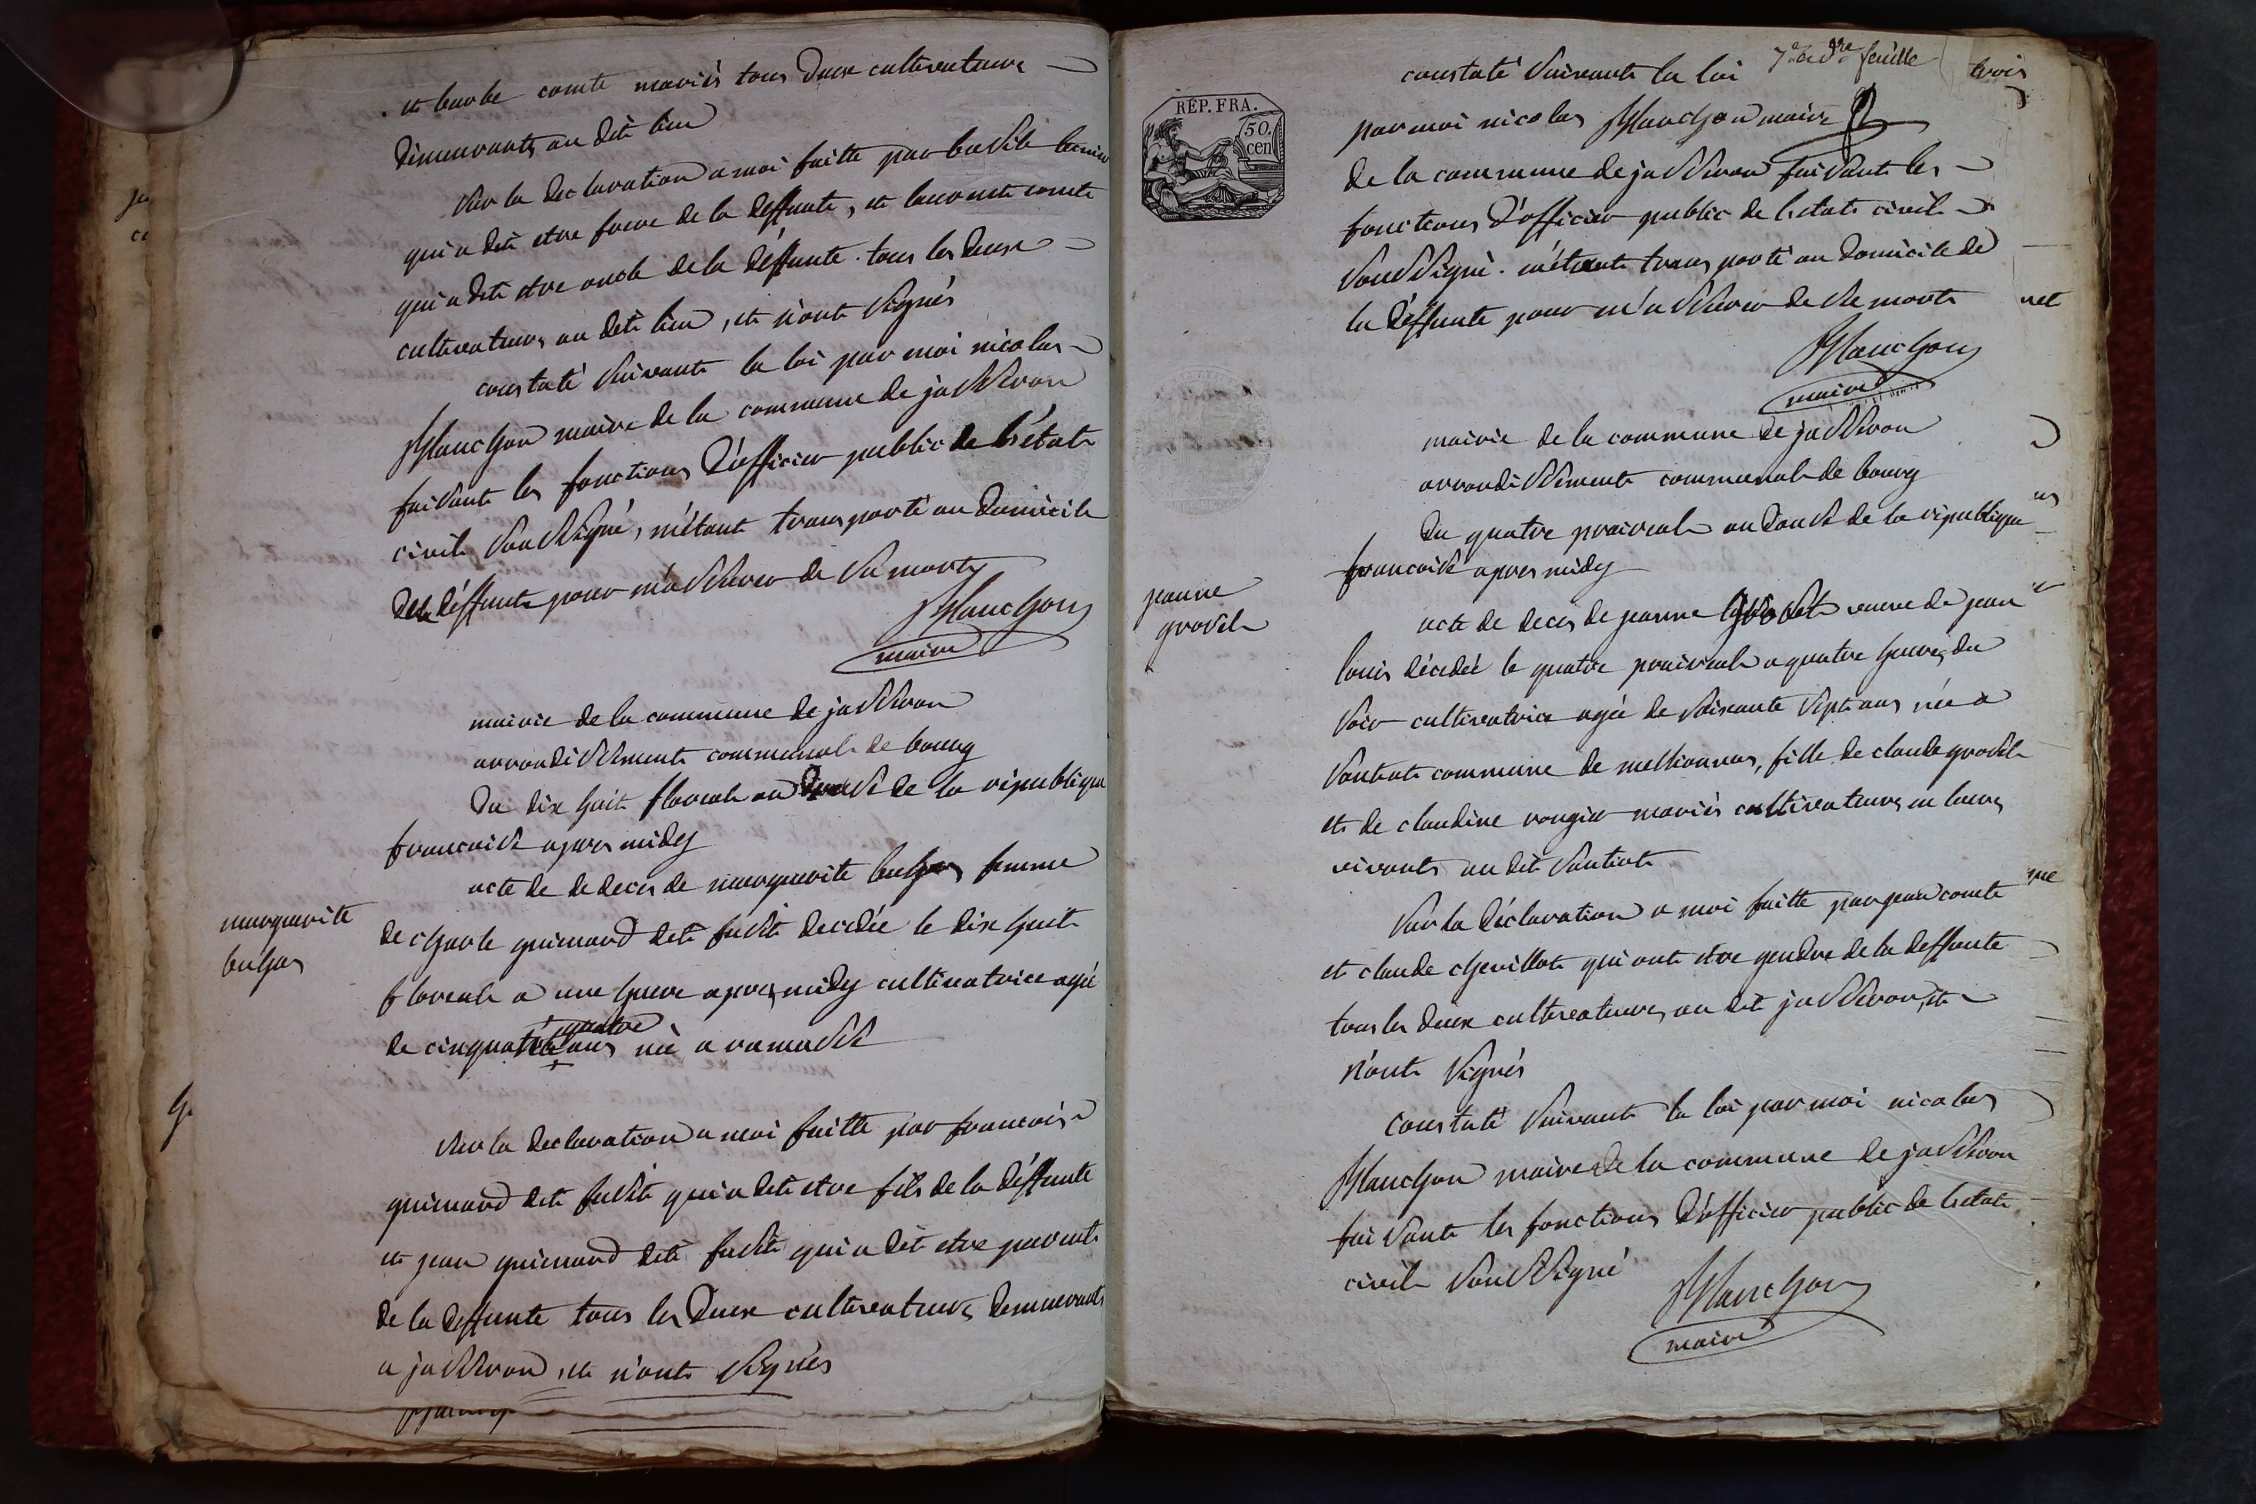 et barbe comte mariés tous deux cultivateurs
demeurants au dit lieu
sur la declaration a moi faitte par basile
qui a dit etre frere de la deffunte, et laurent comte
qui a dit etre oncle de la déffunte tous les deux
cultivateurs au dit lieu, et n'ont signés
constaté suivant la loi par moi nicolas
Planchon maire de la commune de jasseron
faisant les fonctions d'officier public de l'état
civil soussigné, m'étant transporté au domicile
de la déffunte pour m'assurer de sa mort
Planchon
maire
mairie de la commune de jasseron
arrondissement communal de bourg
Du dix huit floreal an douse de la république
francaise apres midy
marguerite
buhas
acte de de deces de marguerite buhas femme
de charle guimard dit fusit decedée le dix huit
floreal a une heure apres midy cultivatrice agée
de cinquante quatre ans née a ramasse
sur la declaration a moi faitte par francois
guimard dit fusit qui a dit etre fils de la déffunte
et jean guimard dit fusit qui a dit etre parent
de la deffunte tous les deux cultivateurs demeurants
a jasseron, et n'ont signés
7e et dre feuille
trois
RÉP. FRA.
50.
cen
constaté suivant la loi
par moi nicolas Planchon maire
de la commune de jasseron faisant les
fonctions d'officier public de l'etat civil
soussigné m'étant transporté au domicile de
la déffunte pour m'assurer de sa mort
Planchon
maire
mairie de la commune de jasseron
arrondissement communal de bourg
Du quatre prairial an douse de la république
francaise apres midy
jeanne
grosel
acte de deces de jeanne veuve de jean
louis décédée le quatre prairial a quatre heures du
soir cultivatrice agée de soixante sept ans née a
santiat commune de meillonnas, fille de claude grosel
et de claudine rougier mariés cultivateurs en leurs
vivants au dit santiat
sur la déclaration a moi faitte par jean comte
et claude chevillot qui ont etre gendre de la deffunte
tous les deux cultivateurs au dit jasseron, et
n'ont signés
constaté suivant la loi par moi nicolas
Planchon maire de la commune de jasseron
faisant les fonctions d'officier public de l'etat
civil soussigné
Planchon
maire